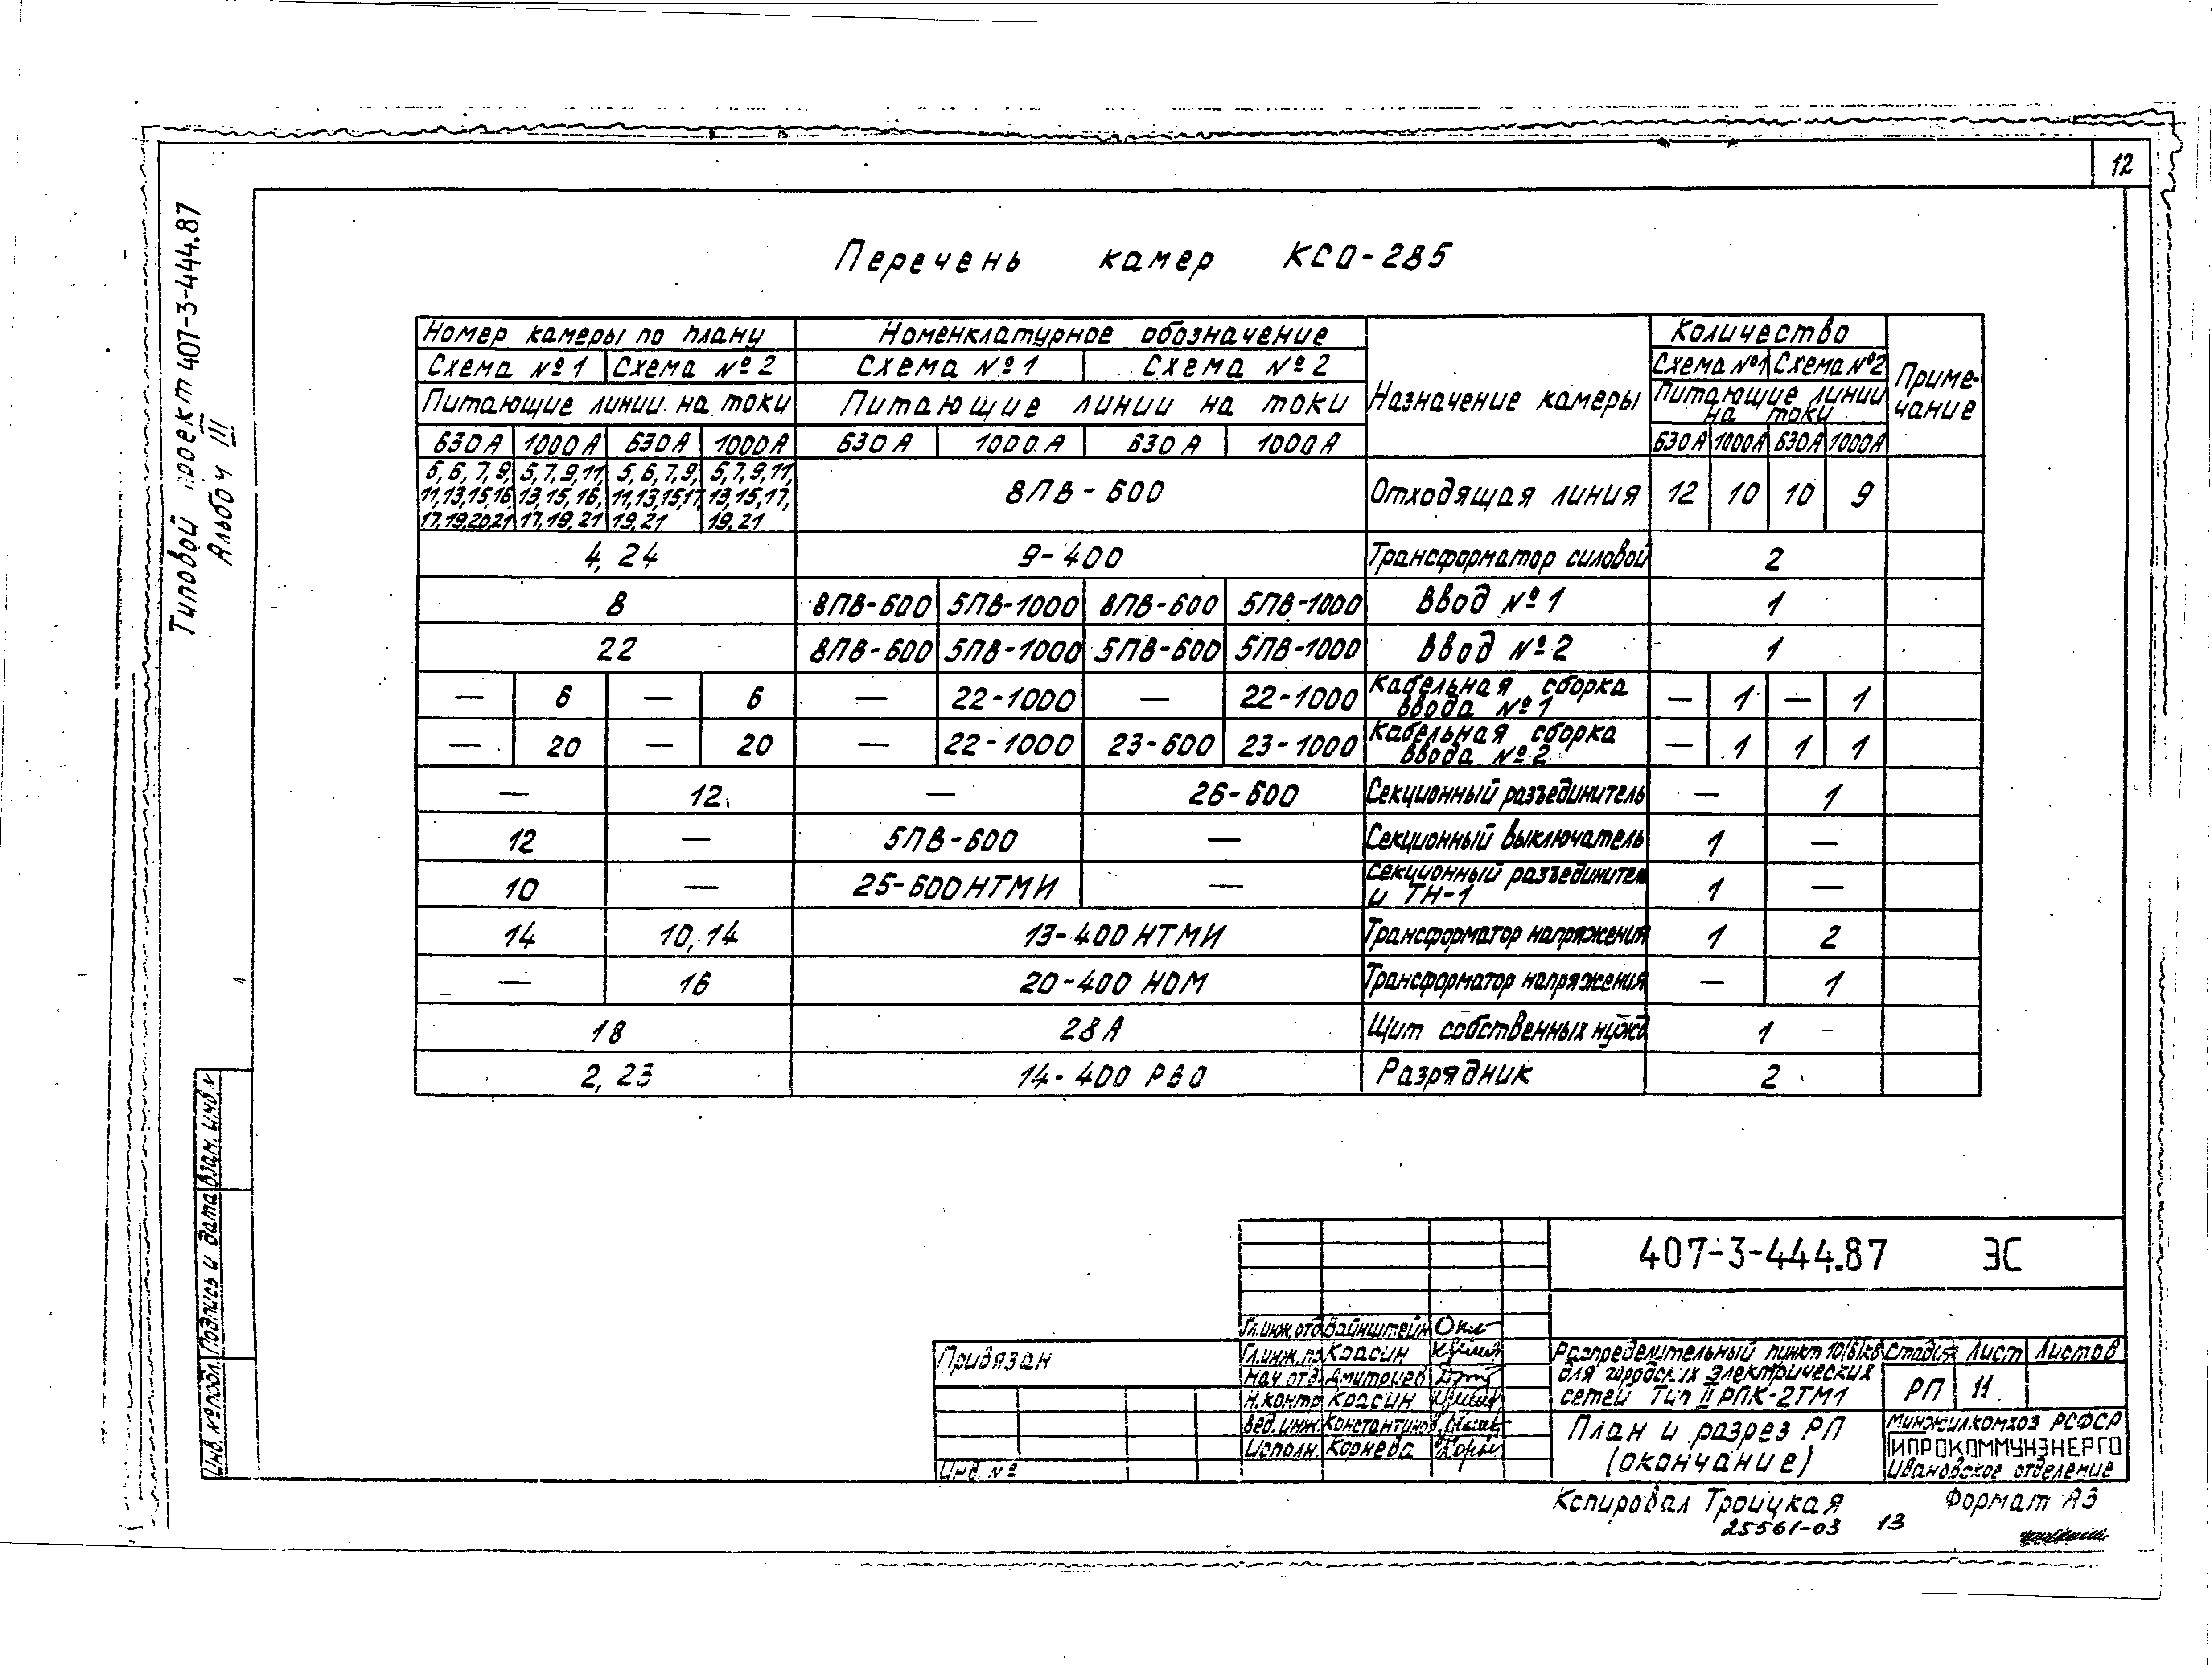 12
Типовой проект 407-3-444.87
Альбом III
Перечень камер КСО-285
Номер камеры по плану | Номенклатурное обозначение | Назначение камеры | Количество | Приме-чание
Схема №1 | Схема №2 | Схема №1 | Схема №2 | Схема №1 | Схема №2
Питающие линии на токи | Питающие линии на токи | Питающие линии на токи
630А | 1000А | 630А | 1000А | 630А | 1000А | 630А | 1000А | 630А | 1000А | 630А | 1000А
5,6,7,9, 11,13,15,16, 17,19,20,21 | 5,7,9,11, 13,15,16, 17,19,21 | 5,6,7,9, 11,13,15,17, 19,21 | 5,7,9,11, 13,15,17, 19,21 | 8ПВ-600 | Отходящая линия | 12 | 10 | 10 | 9
4,24 | 9-400 | Трансформатор силовой | 2
8 | 8ПВ-600 | 5ПВ-1000 | 8ПВ-600 | 5ПВ-1000 | Ввод №1 | 1
22 | 8ПВ-600 | 5ПВ-1000 | 5ПВ-600 | 5ПВ-1000 | Ввод №2 | 1
— | 6 | — | 6 | — | 22-1000 | — | 22-1000 | Кабельная сборка ввода №1 | — | 1 | — | 1
— | 20 | — | 20 | — | 22-1000 | 23-600 | 23-1000 | Кабельная сборка ввода №2 | — | 1 | 1 | 1
— | 12 | — | 26-600 | Секционный разъединитель | — | 1
12 | — | 5ПВ-600 | — | Секционный выключатель | 1 | —
10 | — | 25-600 НТМИ | — | Секционный разъединител и ТН-1 | 1 | —
14 | 10,14 | 13-400 НТМИ | Трансформатор напряжения | 1 | 2
— | 16 | 20-400 НОМ | Трансформатор напряжения | — | 1
18 | 28А | Щит собственных нужд | 1
2,23 | 14-400 РВО | Разрядник | 2
Инв. № подл. | Подпись и дата | Взам. инв. №
407-3-444.87 ЭС
Привязан
Инв. №
Гл.инж.отд Вайнштейн
Гл.инж.пр Красин
Нач.отд. Дмитриев
Н.контр Красин
Вед.инж. Константинов
Исполн. Корнева
Распределительный пункт 10(6)кв
для городских электрических
сетей Тип II РПК-2ТМ1
Стадия | Лист | Листов
РП | 11
План и разрез РП
(окончание)
Минжилкомхоз РСФСР
ГИПРОКОММУНЭНЕРГО
Ивановское отделение
Копировал Троицкая
Формат А3
25561-03 13